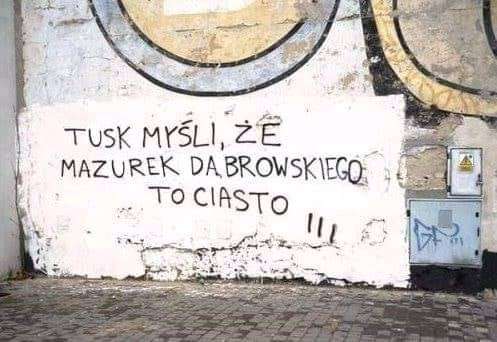 TUSK MYŚLI, ŻE
MAZUREK DĄBROWSKIEGO
TO CIASTO
!!!